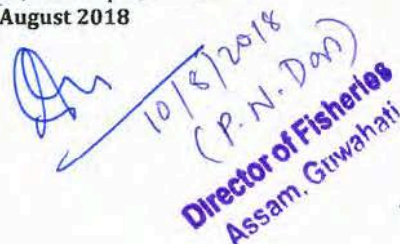 August 2018
10/8/2018
(P. N. Das)
Director of Fisheries
Assam, Guwahati